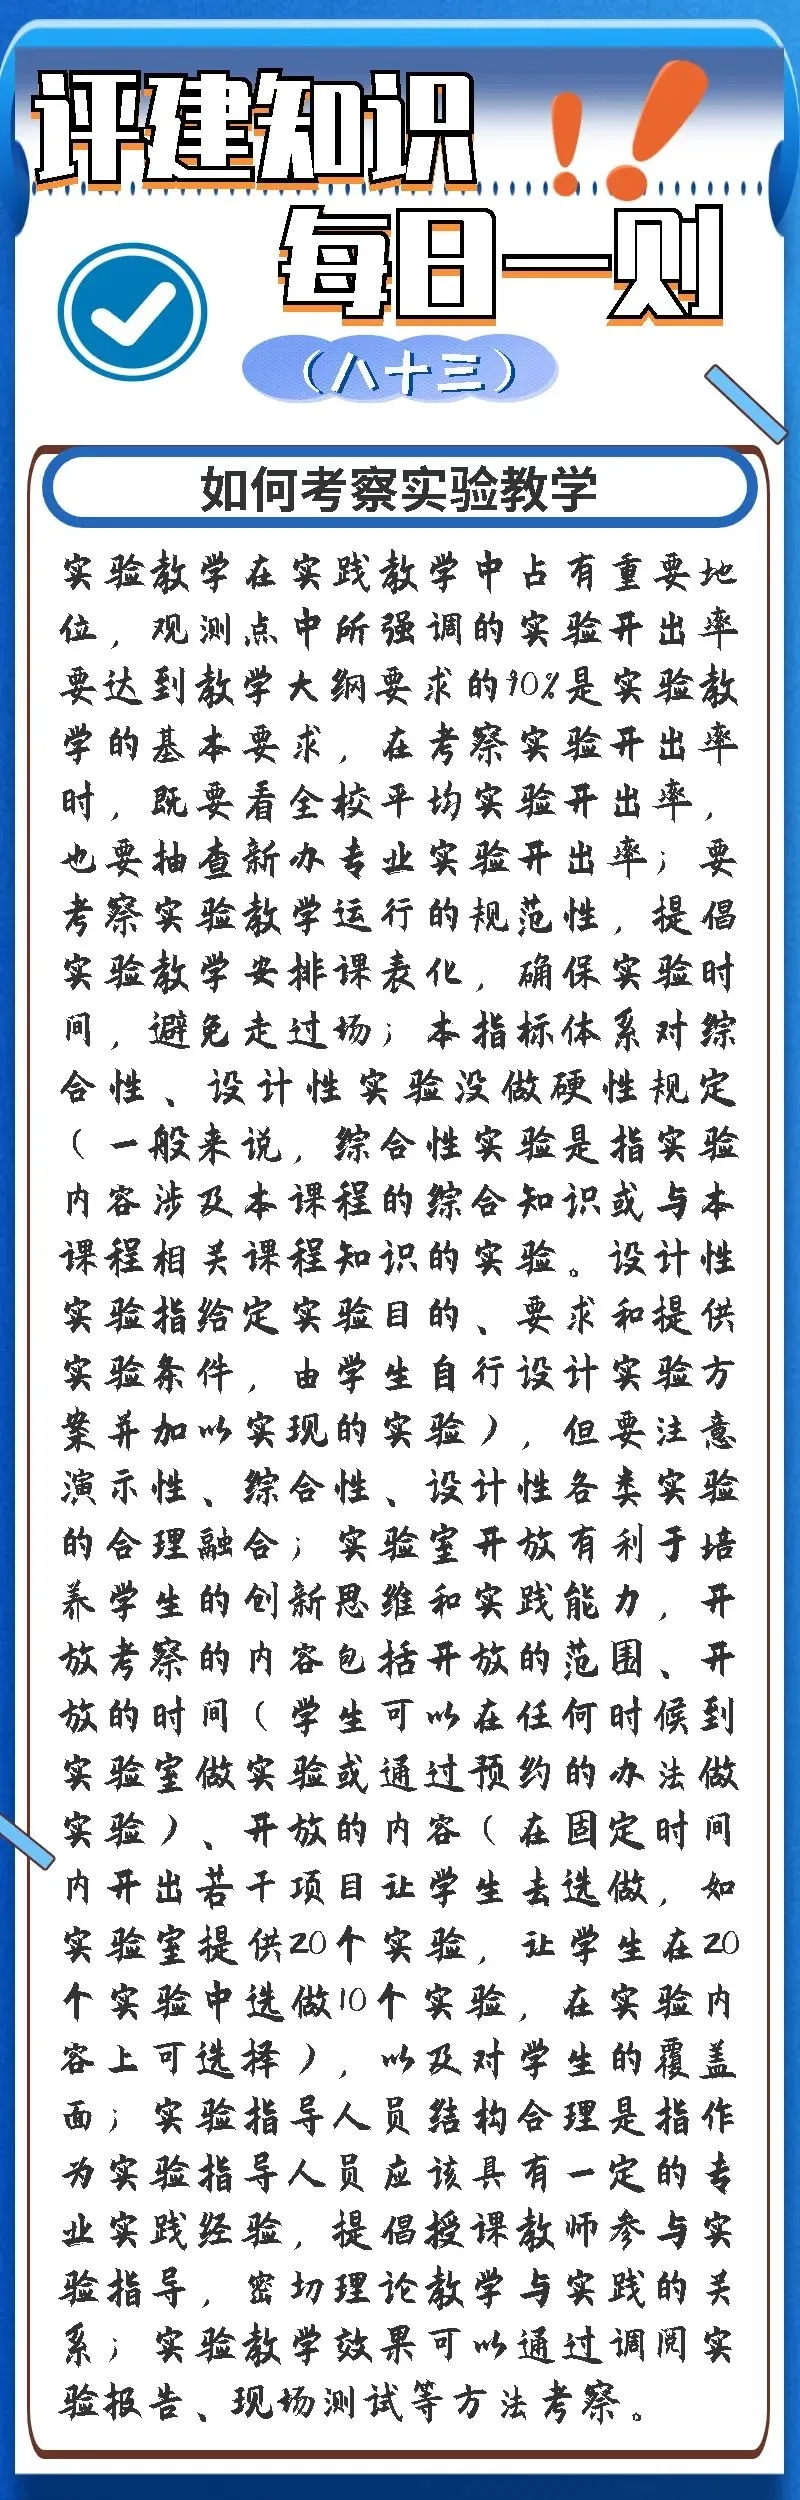 评建知识
每日一则
（八十三）
如何考察实验教学
实验教学在实践教学中占有重要地
位，观测点中所强调的实验开出率
要达到教学大纲要求的90%是实验教
学的基本要求，在考察实验开出率
时，既要看全校平均实验开出率，
也要抽查新办专业实验开出率；要
考察实验教学运行的规范性，提倡
实验教学安排课表化，确保实验时
间，避免走过场；本指标体系对综
合性、设计性实验没做硬性规定
（一般来说，综合性实验是指实验
内容涉及本课程的综合知识或与本
课程相关课程知识的实验。设计性
实验指给定实验目的、要求和提供
实验条件，由学生自行设计实验方
案并加以实现的实验），但要注意
演示性、综合性、设计性各类实验
的合理融合；实验室开放有利于培
养学生的创新思维和实践能力，开
放考察的内容包括开放的范围、开
放的时间（学生可以在任何时候到
实验室做实验或通过预约的办法做
实验）、开放的内容（在固定时间
内开出若干项目让学生去选做，如
实验室提供20个实验，让学生在20
个实验中选做10个实验，在实验内
容上可选择），以及对学生的覆盖
面；实验指导人员结构合理是指作
为实验指导人员应该具有一定的专
业实践经验，提倡授课教师参与实
验指导，密切理论教学与实践的关
系；实验教学效果可以通过调阅实
验报告、现场测试等方法考察。